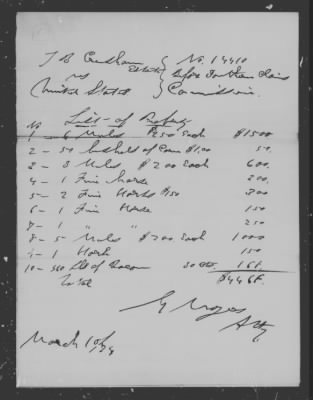 T B Censham Estate } No. 14410
vs } Before Southern Claims
United States } Commission.
List of Property
No
1 - 6 Mules $250 Each $1500
2 - 50 bushels of Corn $1.00 50.
2 - 3 Mules $200 Each 600.
4 - 1 Fine horse 200.
5 - 2 Fine Horses $150 300
6 - 1 Fine Horse 150
7 - 1 " " 250
8 - 5 Mules $200 Each 1000
9 - 1 Horse 150
10 - 560 lbs of Bacon 30 cts 168.
Total $4468.
G Moyers
Atty
March 10/74